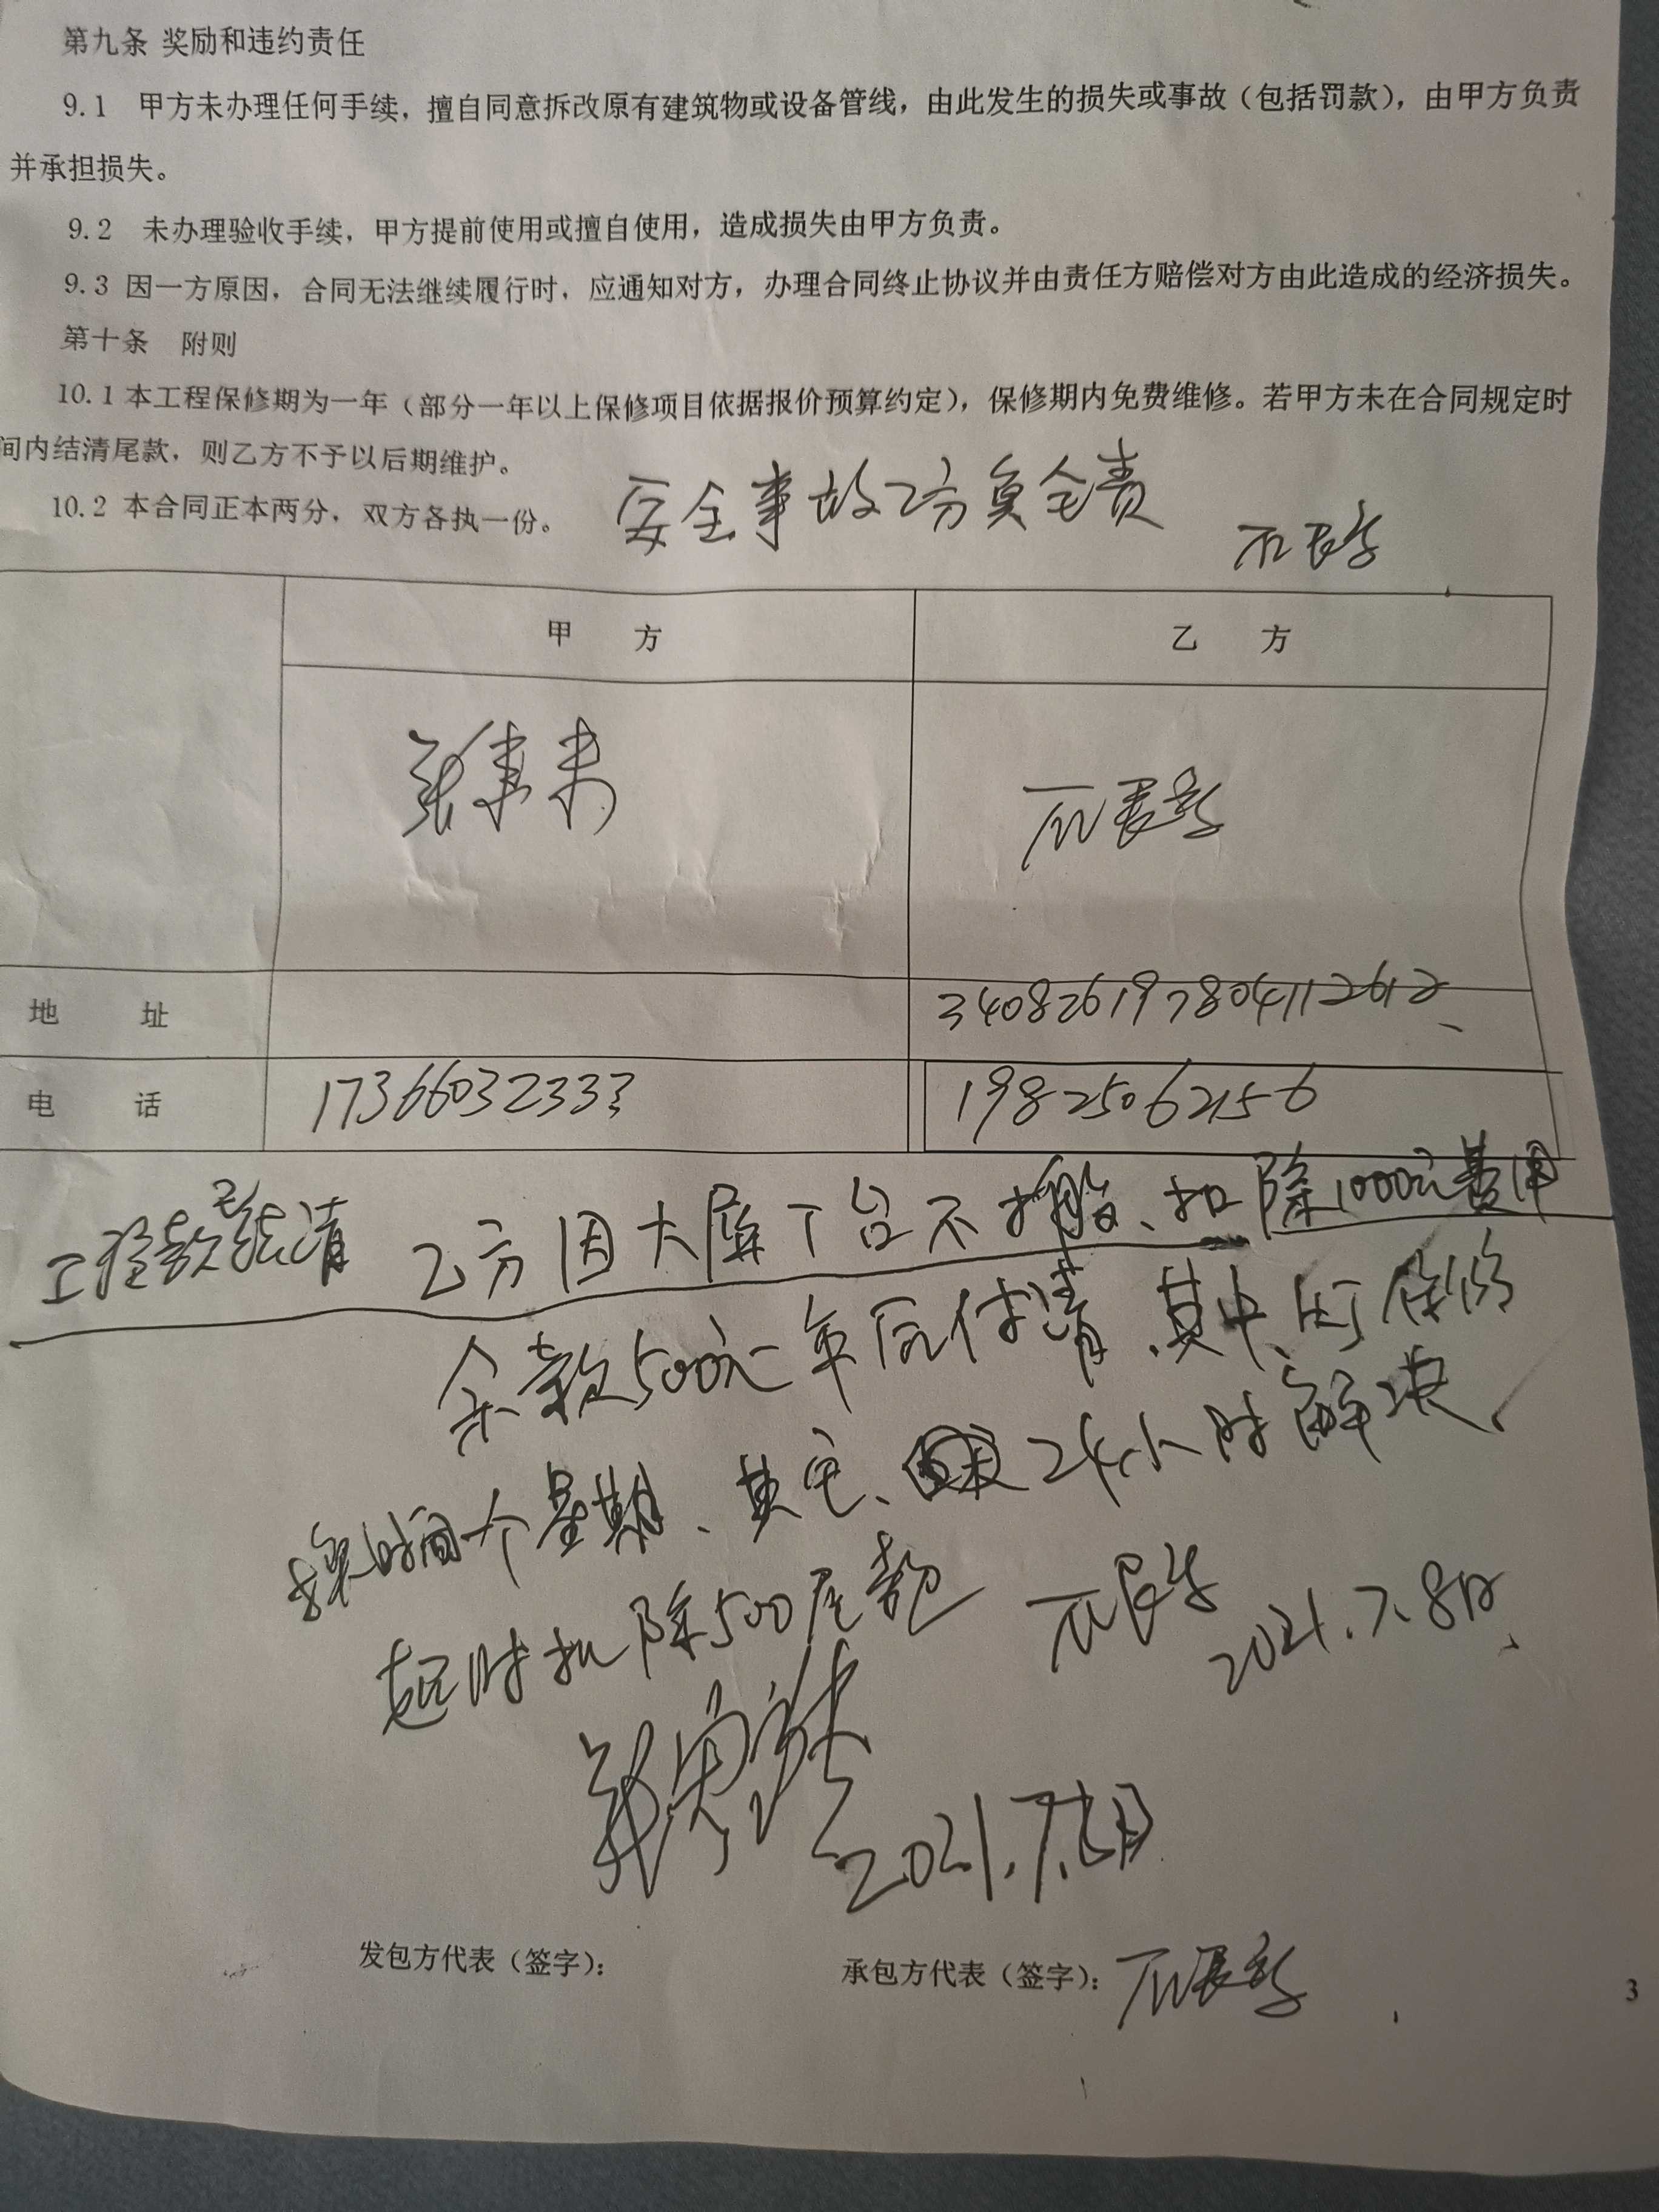 第九条 奖励和违约责任
9.1 甲方未办理任何手续，擅自同意拆改原有建筑物或设备管线，由此发生的损失或事故（包括罚款），由甲方负责
并承担损失。
9.2 未办理验收手续，甲方提前使用或擅自使用，造成损失由甲方负责。
9.3 因一方原因，合同无法继续履行时，应通知对方，办理合同终止协议并由责任方赔偿对方由此造成的经济损失。
第十条 附则
10.1 本工程保修期为一年（部分一年以上保修项目依据报价预算约定），保修期内免费维修。若甲方未在合同规定时
间内结清尾款，则乙方不予以后期维护。
10.2 本合同正本两分，双方各执一份。
安全事故乙方负全责
甲 方 乙 方
地 址 340826197804112612
电 话 17366032333 19825062156
工程款已结清 乙方因大屏下台不 扣除1000元费用
余款500元一年后付清、其中 保修
换时间一个星期、其它、24小时解决
超时扣除500尾款 2021.7.8日
2021.7.
发包方代表（签字）： 承包方代表（签字）：
3